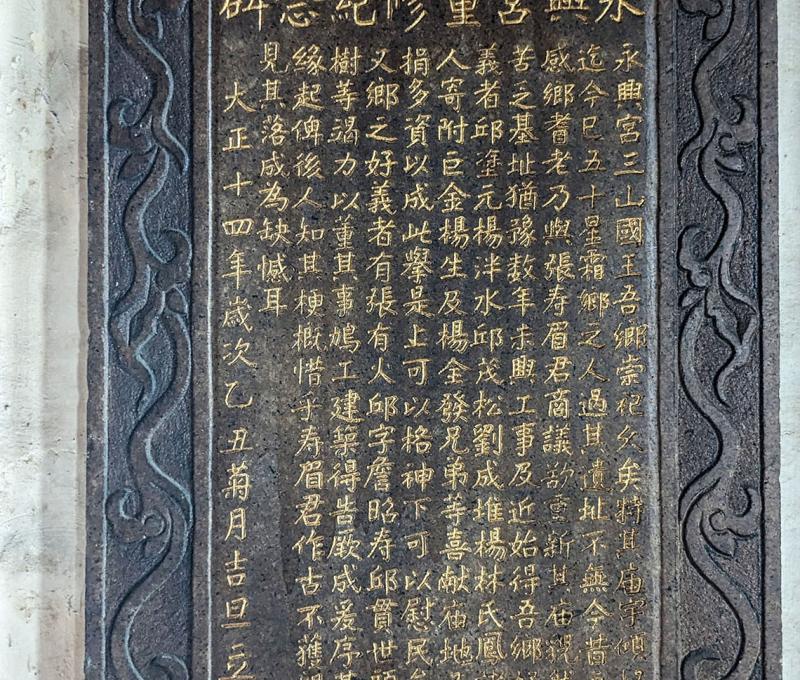 永興宮重修紀念碑
永興宮三山國王吾鄉崇祀久矣特其庙宇傾
迄今已五十星霜鄉之人過其遺址不無今昔
感鄉耆老乃與張寿眉君商議欲重新其庙貌
苦之基址猶豫数年未興工事及近始得吾鄉
義者邱塗元楊泮水邱茂松劉成堆楊林氏鳳
人寄附巨金楊生及楊金發兄弟等喜献庙地
捐多資以成此擧是上可以格神下可以慰民
又鄉之好義者有張有火邱字詹昭寿邱貫世
樹等竭力以董其事鳩工建築得告厥成爰序其
緣起俾後人知其梗概惜乎寿眉君作古不獲
見其落成為缺憾耳
大正十四年歲次乙丑菊月吉旦立